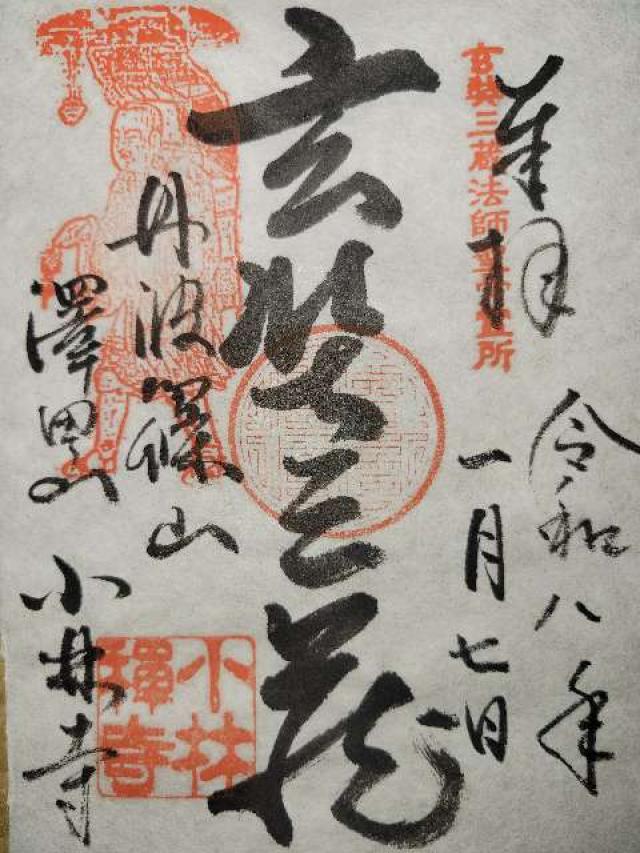 奉拝
玄奘三蔵法師霊場札所
令和八年
一月七日
玄奘三蔵
丹波篠山
澤田山
小林寺
小林
禅寺